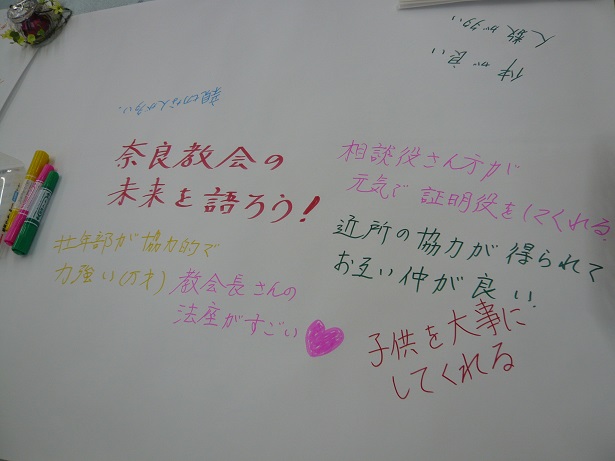 人数が多い
仲が良い
親切な人が多い。
奈良教会の
未来を語ろう!
相談役さん方が
元気で証明役をしてくれる
近所の協力が得られて
お互い仲が良い
壮年部が協力的で
力強い(万才)
教会長さんの
法座がすごい
子供を大事に
してくれる